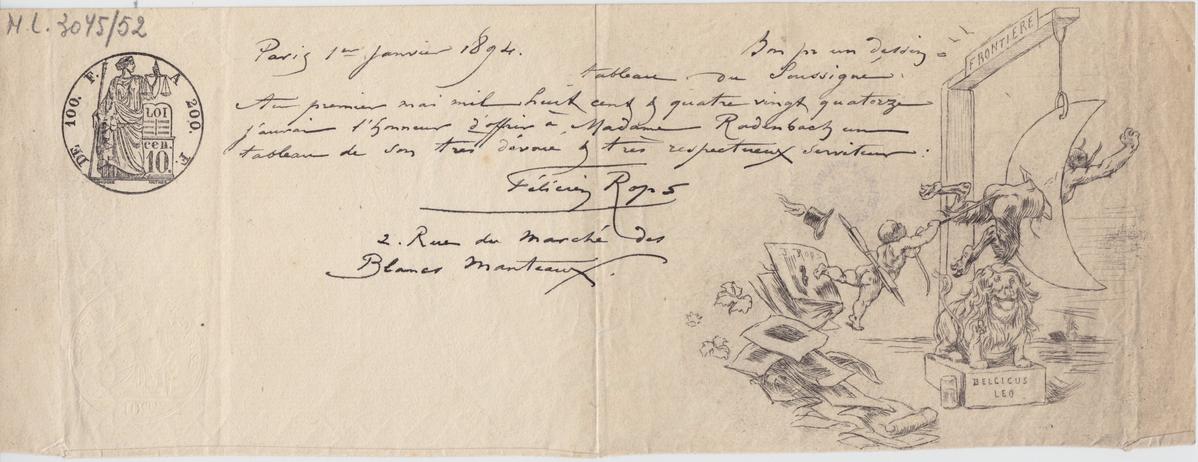 M.L. 3045/52
DE 100. F. A 200. F.
LOI
cen. 10.
Paris 1er Janvier 1894.
Bon pr un dessin =
tableau du Soussigné.
Au premier mai mil huit cent & quatre vingt quatorze
j'aurai l'honneur d'offrir à Madame Rodenbach un
tableau de son très dévoué & très respectueux serviteur:
Félicien Rops
2. Rue du Marché des
Blancs Manteaux.
FRONTIÈRE
F. ROPS
BELGICUS
LEO